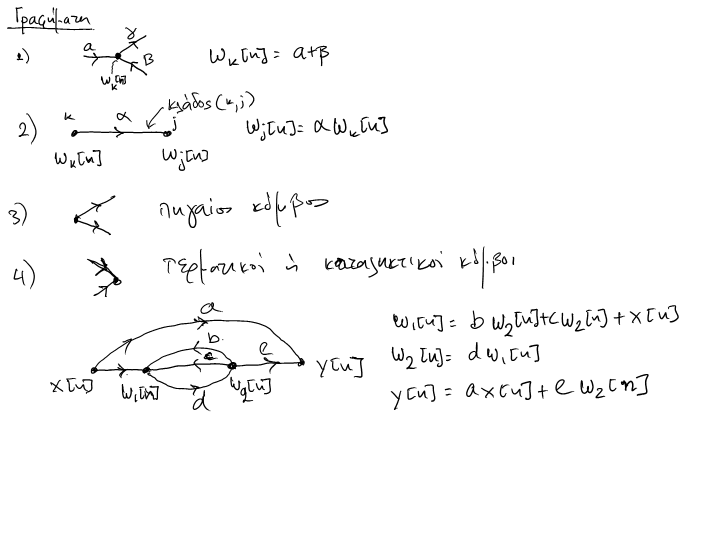 Γραφήματα
1) a γ β wₖ[n] wₖ[n] = a+β
2) κ α κλάδος (κ,j) j wₖ[n] wⱼ[n] wⱼ[n] = α wₖ[n]
3) πηγαίος κόμβος
4) τερματικοί ή καταληκτικοί κόμβοι
a b c e d x[n] w₁[n] w₂[n] y[n]
w₁[n] = b w₂[n] + c w₂[n] + x[n]
w₂[n] = d w₁[n]
y[n] = a x[n] + e w₂[n]